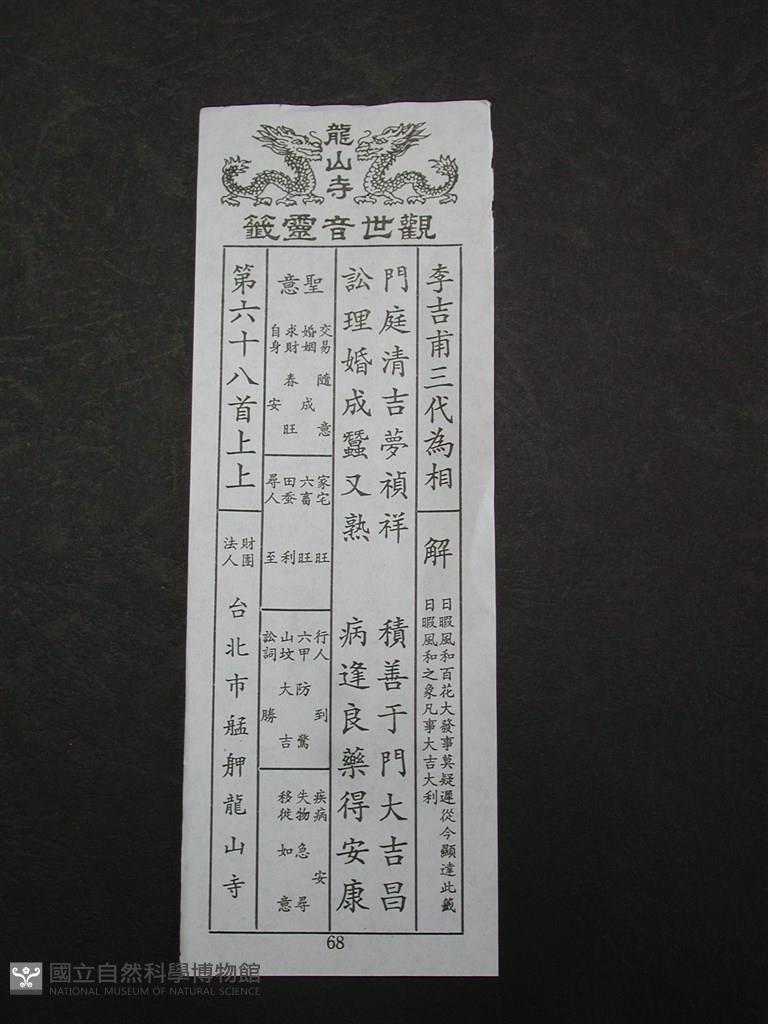 龍山寺
觀世音靈籤
李吉甫三代為相
解
日暇風和百花大發事莫疑遲從今顯達此籤
日暇風和之象凡事大吉大利
門庭清吉夢禎祥 積善于門大吉昌
訟理婚成蠶又熟 病逢良藥得安康
聖意
交易 隨意
婚姻 成
求財 春旺
自身 安
家宅 旺
六畜 旺
田蚕 利
尋人 至
行人 到
六甲 防驚
山坟 大吉
訟詞 勝
疾病 安
失物 急尋
移徙 如意
第六十八首上上
財團法人
台北市艋舺龍山寺
68
國立自然科學博物館
NATIONAL MUSEUM OF NATURAL SCIENCE